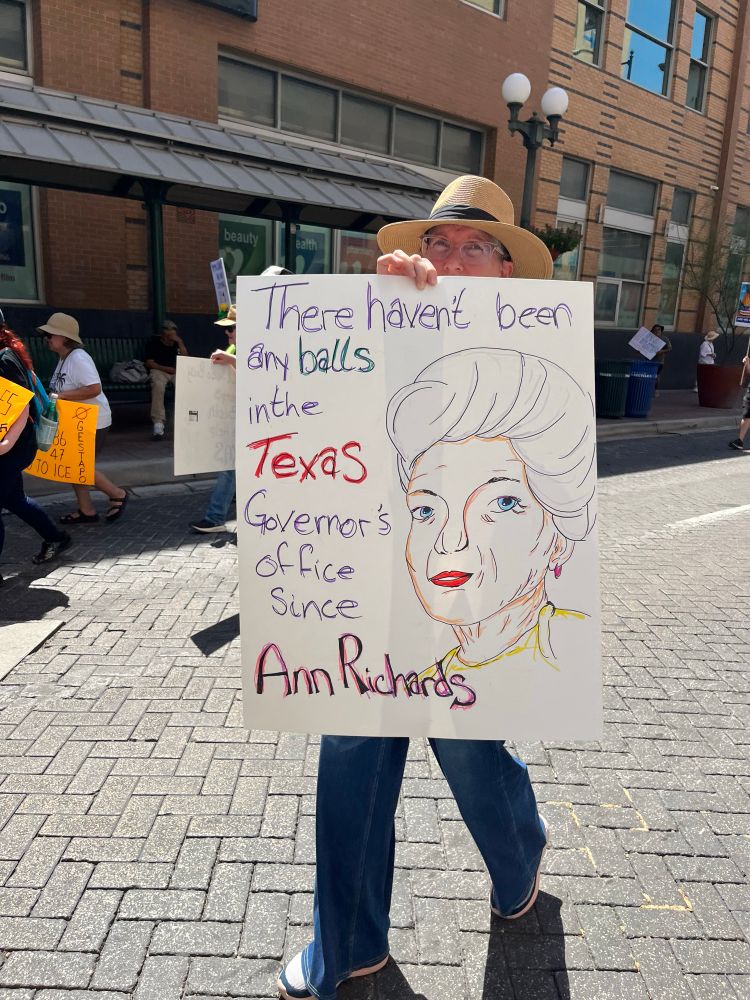 There haven't been
any balls
in the
Texas
Governor's
office
Since
Ann Richards
beauty
health
86
47
GESTAPO
TO ICE
film